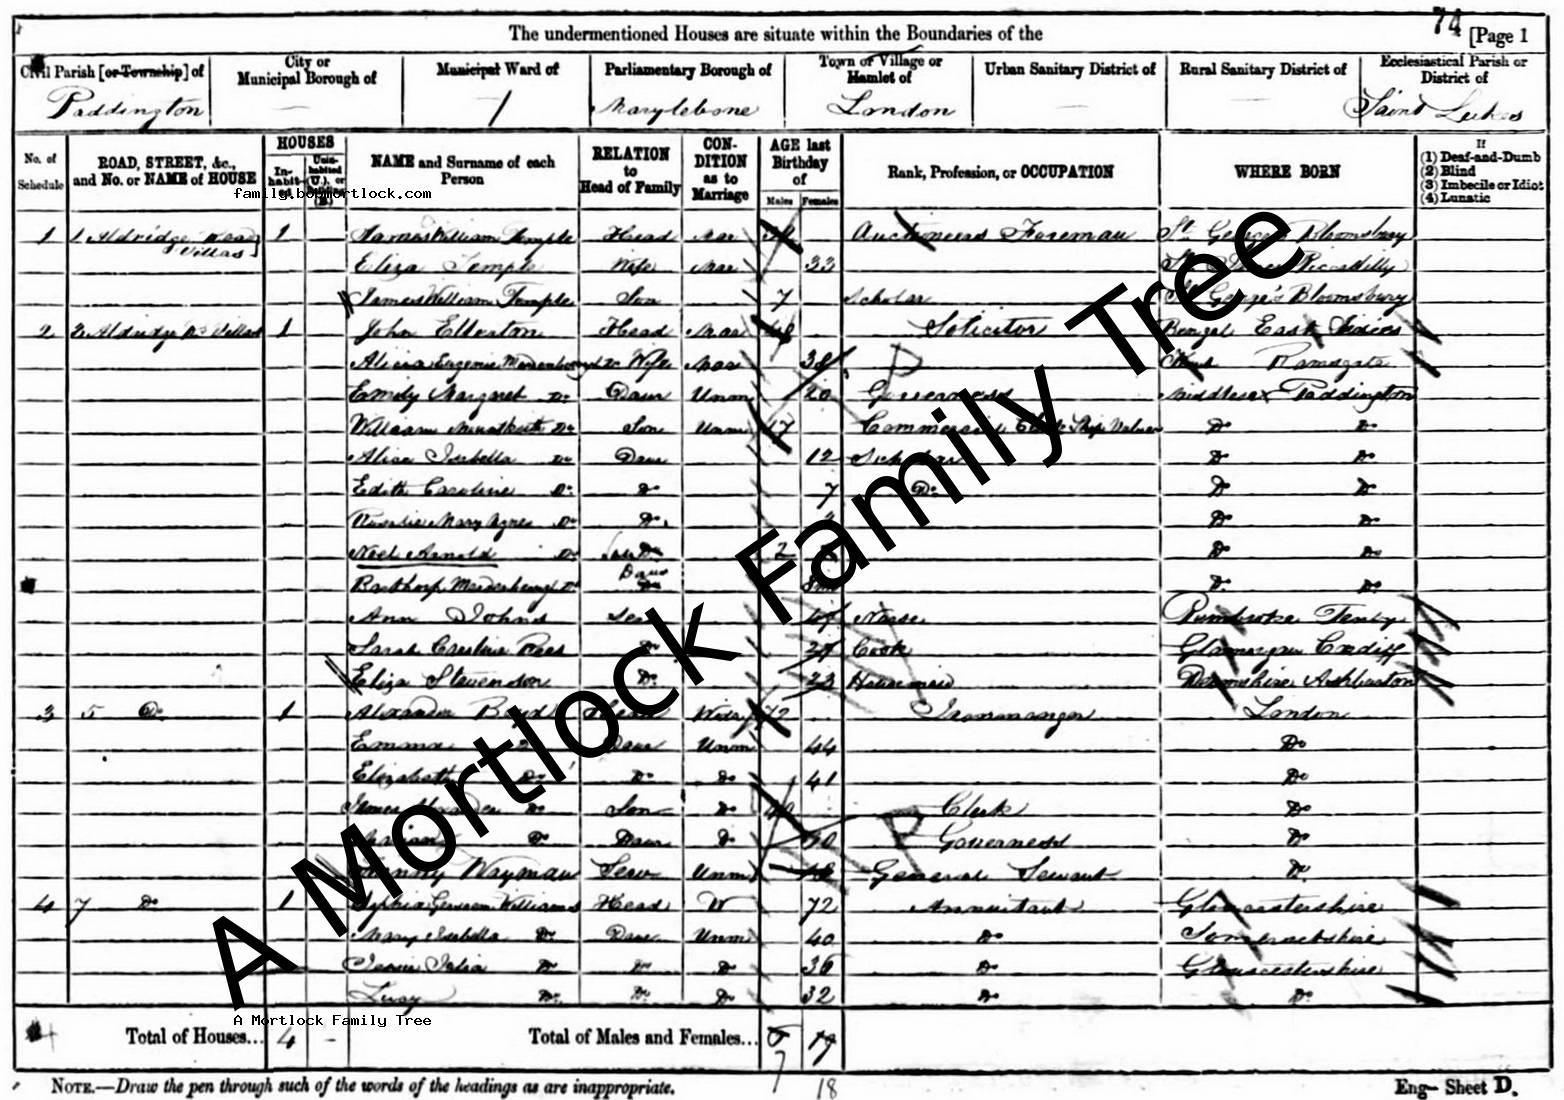 The undermentioned Houses are situate within the Boundaries of the
74 [Page 1
Civil Parish [or Township] of
Paddington
City or Municipal Borough of
—
Municipal Ward of
Parliamentary Borough of
Marylebone
Town or Village or Hamlet of
London
Urban Sanitary District of
—
Rural Sanitary District of
—
Ecclesiastical Parish or District of
Saint Lukes
No. of Schedule
ROAD, STREET, &c., and No. or NAME of HOUSE
HOUSES
In-habit-ed
Unin-habited (U.), or (B.)
NAME and Surname of each Person
RELATION to Head of Family
CON-DITION as to Marriage
AGE last Birthday of
Males Females
Rank, Profession, or OCCUPATION
WHERE BORN
If
(1) Deaf-and-Dumb
(2) Blind
(3) Imbecile or Idiot
(4) Lunatic
family.bobmortlock.com
1 1 Aldridge Road Villas 1 William Temple Head Mar Auctioneers Foreman St George Bloomsbury
Eliza Temple Wife Mar 33 Piccadilly
James William Temple Son 7 Scholar St George's Bloomsbury
2 3 Aldridge Rd Villas 1 John Ellerton Head Mar Solicitor Bengal East Indies
Alicia Eugenia Do Wife Mar 38 Kent Ramsgate
Emily Margaret Do Daur Unm 20 Governess Middlesex Paddington
William Do Son Unm 17 Commercial Clerk Ship Valuer Do Do
Alice Isabella Do Daur 12 Scholar Do Do
Edith Caroline Do Do 7 Do Do Do
Rosalie Mary Agnes Do Do Do Do
Noel Arnold Do 2 Do Do
Do Daur Do Do
Ann Johns Ser Nurse Pembroke Tenby
Sarah Rees Do Cook Glamorgan Cardiff
Eliza Stevenson Do 23 Housemaid Devonshire Ashburton
3 5 Do 1 Alexander Head Widr 72 Ironmonger London
Emma Daur Unm 44 Do
Elizabeth Do Do Do 41 Do
James Do Son Do Clerk Do
Do Daur Do Governess Do
Wayman Serv Unm General Servant Do
4 7 Do 1 Williams Head W 72 Annuitant Gloucestershire
Mary Isabella Do Daur Unm 40 Do Somersetshire
Do Do Do 36 Do Gloucestershire
Lucy Do Do Do 32 Do Do
A Mortlock Family Tree
A Mortlock Family Tree
Total of Houses... 4 - Total of Males and Females... 7 17
7 18
NOTE.—Draw the pen through such of the words of the headings as are inappropriate.
Eng— Sheet D.